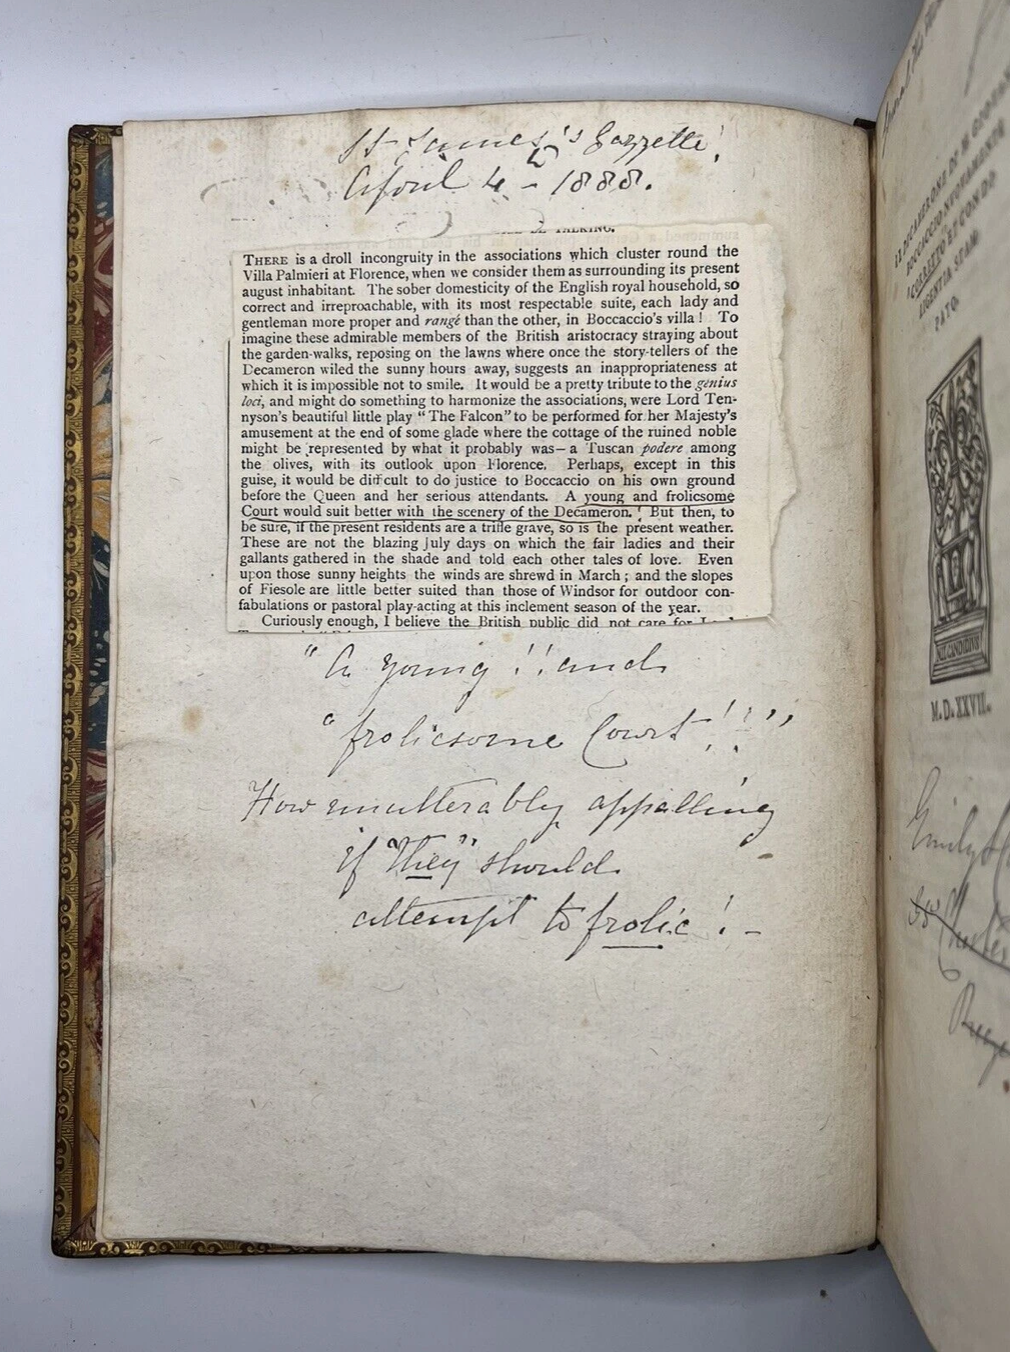 St James's Gazzette!
April 4 - 1888.
THERE is a droll incongruity in the associations which cluster round the
Villa Palmieri at Florence, when we consider them as surrounding its present
august inhabitant. The sober domesticity of the English royal household, so
correct and irreproachable, with its most respectable suite, each lady and
gentleman more proper and rangé than the other, in Boccaccio's villa! To
imagine these admirable members of the British aristocracy straying about
the garden-walks, reposing on the lawns where once the story-tellers of the
Decameron wiled the sunny hours away, suggests an inappropriateness at
which it is impossible not to smile. It would be a pretty tribute to the genius
loci, and might do something to harmonize the associations, were Lord Ten-
nyson's beautiful little play "The Falcon" to be performed for her Majesty's
amusement at the end of some glade where the cottage of the ruined noble
might be represented by what it probably was—a Tuscan podere among
the olives, with its outlook upon Florence. Perhaps, except in this
guise, it would be difficult to do justice to Boccaccio on his own ground
before the Queen and her serious attendants. A young and frolicsome
Court would suit better with the scenery of the Decameron. But then, to
be sure, if the present residents are a trifle grave, so is the present weather.
These are not the blazing July days on which the fair ladies and their
gallants gathered in the shade and told each other tales of love. Even
upon those sunny heights the winds are shrewd in March; and the slopes
of Fiesole are little better suited than those of Windsor for outdoor con-
fabulations or pastoral play-acting at this inclement season of the year.
Curiously enough, I believe the British public did not care for
"A young!! and
"frolicsome Court!!!"
How unutterably appalling
if "they" should
attempt to frolic! -
IL DECAMERONE DI M GIOVAN
BOCCACCIO NUOVAMENTE
CORRETTO ET CON DI
LIGENTIA STAM
PATO.
M.D.XXVII.
Emily